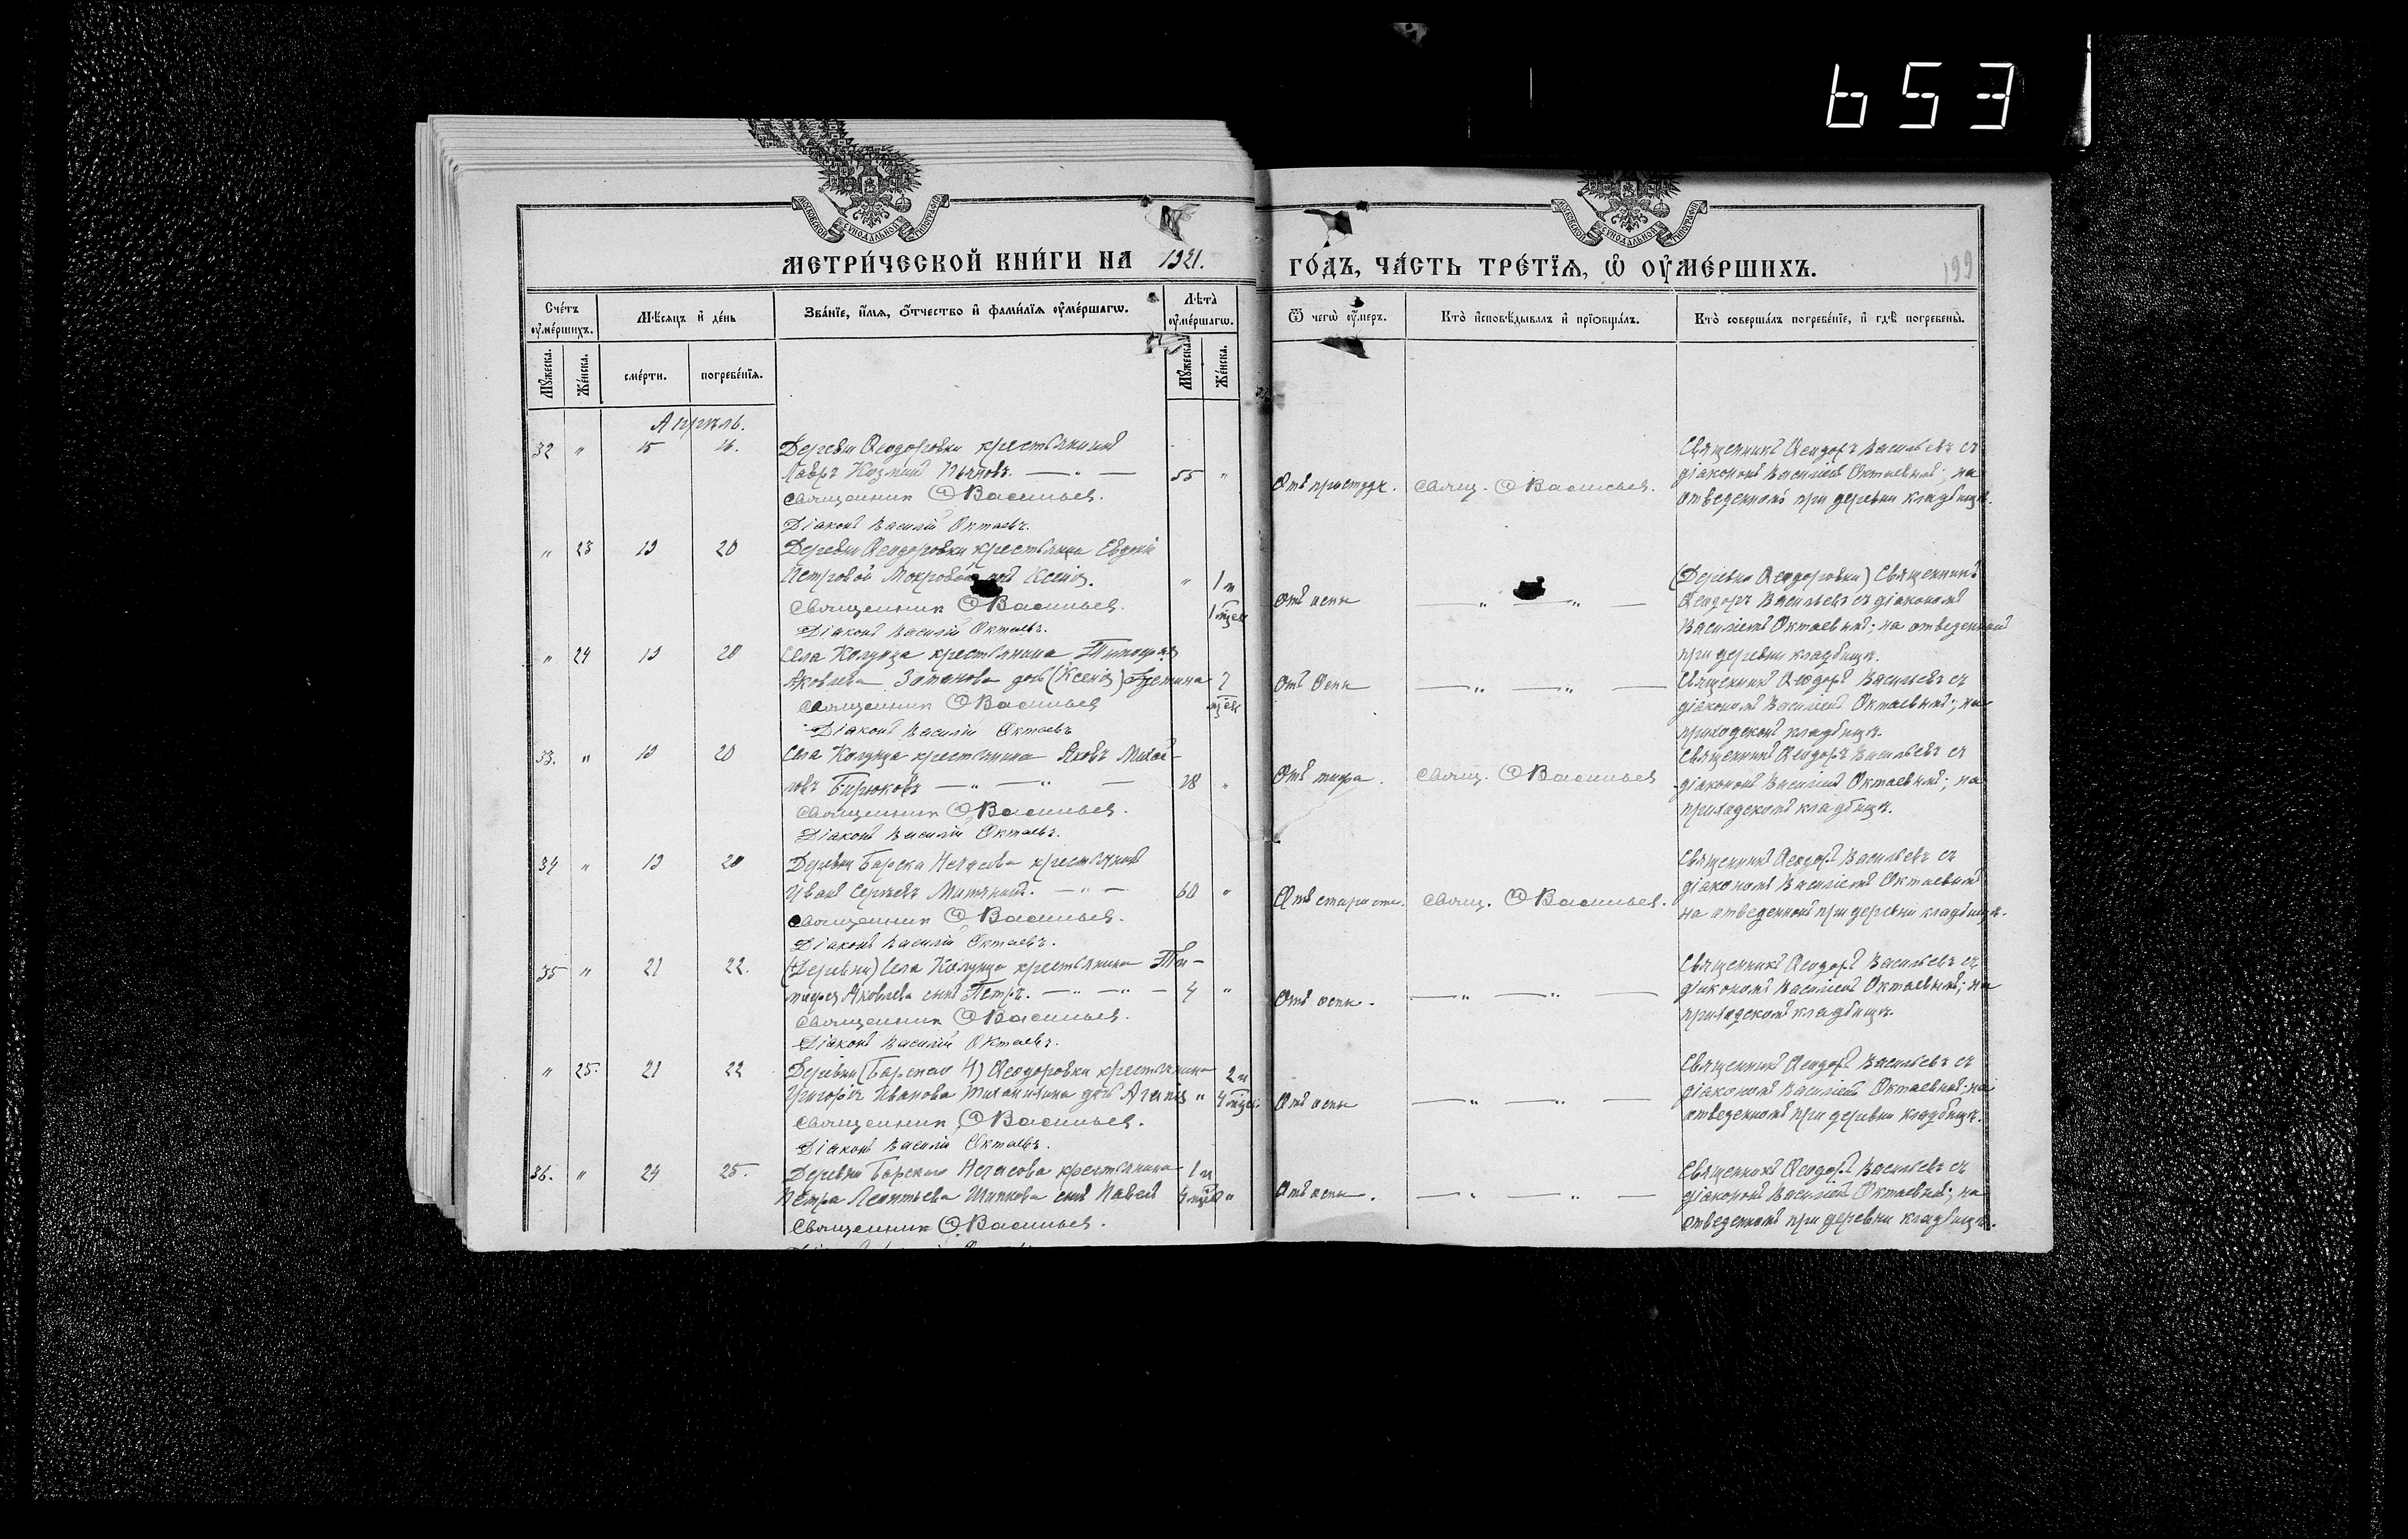 653
МОСКОВСКОЙ СѴНОДАЛЬНОЙ ТИПОГРАФІИ
МОСКОВСКОЙ СѴНОДАЛЬНОЙ ТИПОГРАФІИ
МЕТРИ́ЧЕСКОЙ КНИ́ГИ НА 1921. ГО́ДЪ, ЧА́СТЬ ТРЕ́ТЇѦ, Ѽ ОУ҆МЕ́РШИХЪ.
199
Сче́тъ оу҆ме́ршихъ.
Мѣсяцъ и҆ де́нь
Зва́нїе, и҆́мѧ, ѻ҆́тчество и҆ фами́лїѧ оу҆ме́ршагѡ.
Лѣта̀ оу҆ме́ршагѡ.
Ѿ чегѡ̀ оу҆́меръ.
Кто̀ и҆сповѣ́дывалъ и҆ прїѡбща́лъ.
Кто̀ соверша́лъ погребе́нїе, и҆ гдѣ̀ погребены̀.
Мꙋ́жеска. Же́нска. сме́рти. погребе́нїѧ. Мꙋ́жеска. Же́нска.
Апрѣль.
32 " 15 16. Деревни Ѳеодоровки крестьянинъ
Лавръ Козминъ — " — 55 "
Священник Ѳ Васильев.
Діаконъ Василій Октаевъ.
Отъ простуды. Свящ. Ѳ Васильев.
Священникъ Ѳеодоръ Васильевъ съ
діакономъ Василіемъ Октаевымъ; на
отведенномъ при деревни кладбищѣ.
" 23 19 20 Деревни Ѳеодоровки крестьянки Евдокіи
Петровой Ксенія. " 1 м
1 мѣс
Священник Ѳ Васильев.
Діаконъ Василій Октаевъ.
Отъ оспы — " — " —
(Деревни Ѳеодоровки) Священникъ
Ѳеодоръ Васильевъ съ діакономъ
Василіемъ Октаевымъ; на отведенномъ
при деревни кладбищѣ.
" 24 19 20 Села Колунца крестьянина Тимофея
Яковлева дочь (Ксенія) 7
мѣс
Священник Ѳ Васильев
Діаконъ Василій Октаевъ
Отъ Оспы — " — " —
Священникъ Ѳеодоръ Васильевъ съ
діакономъ Василіемъ Октаевымъ; на
приходскомъ кладбищѣ.
33. " 19 20 Села Колунца крестьянинъ Яковъ Михай-
ловъ Бирюковъ — " — " — 28 "
Священник Ѳ Васильев.
Діаконъ Василій Октаевъ.
Отъ тифа. Свящ. Ѳ Васильев
Священникъ Ѳеодоръ Васильевъ съ
діакономъ Василіемъ Октаевымъ; на
приходскомъ кладбищѣ.
34 " 19 20 Деревни Барска Негасова крестьянинъ
Иванъ Сергѣевъ Митяшинъ. — " — 60 "
Священник Ѳ Васильев.
Діаконъ Василій Октаевъ.
Отъ старости. Свящ. Ѳ Васильев.
Священникъ Ѳеодоръ Васильевъ съ
діакономъ Василіемъ Октаевымъ
на отведенномъ при деревни кладбищѣ.
35 " 21 22. (Деревни) Села Колунца крестьянина Ти-
мофея Яковлева сынъ Петръ. — " — " — 4 "
Священник Ѳ Васильев.
Діаконъ Василій Октаевъ.
Отъ оспы. — " — " —
Священникъ Ѳеодоръ Васильевъ съ
діакономъ Василіемъ Октаевымъ; на
приходскомъ кладбищѣ.
" 25. 21 22 Деревни (Барскаго Н) Ѳеодоровки крестьянина 2 м
Григорія Иванова дочь Агапія " 4 мѣс.
Священник Ѳ Васильев.
Діаконъ Василій Октаевъ.
Отъ оспы — " — " —
Священникъ Ѳеодоръ Васильевъ съ
діакономъ Василіемъ Октаевымъ; на
отведенномъ при деревни кладбищѣ.
36. " 24 25. Деревни Барскаго Негасова крестьянина 1 м
Петра Леонтьева Шипкова сынъ Павелъ 4 мѣс "
Священник Ѳ Васильев.
Отъ оспы. — " — " —
Священникъ Ѳеодоръ Васильевъ съ
діакономъ Василіемъ Октаевымъ; на
отведенномъ при деревни кладбищѣ.